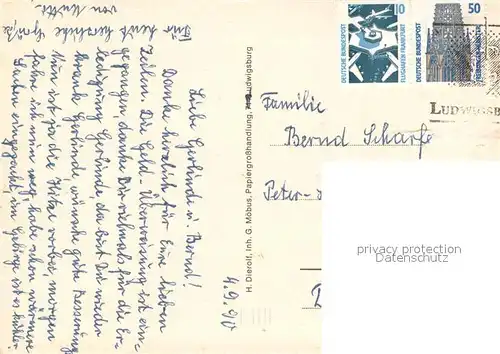 4.9.90
Liebe Gerlinde u. Bernd!
Danke herzlich für Eure lieben
Zeilen. Die Geld. Überweisung ist ein-
gegangen, danke Dir vielmals für die Er-
ledigung Gerlinde, da bist Du wieder
krank Gerlinde, wünsche gute Besserung
Nun ist ja die Hitze vorbei, morgen
fahre ich nun weg, habe schon wärmere
Sachen eingepackt, im Gebirge ist es kühler
Für heut herzliche Grüße
von Mutti.
H. Dierolf, Inh. G. Möbus, Papiergroßhandlung, Ludwigsburg
10
DEUTSCHE BUNDESPOST
FLUGHAFEN FRANKFURT
50
DEUTSCHE BUNDESPOST
LUDWIGSB
Familie
Bernd Scharfe
Peter-
privacy protection